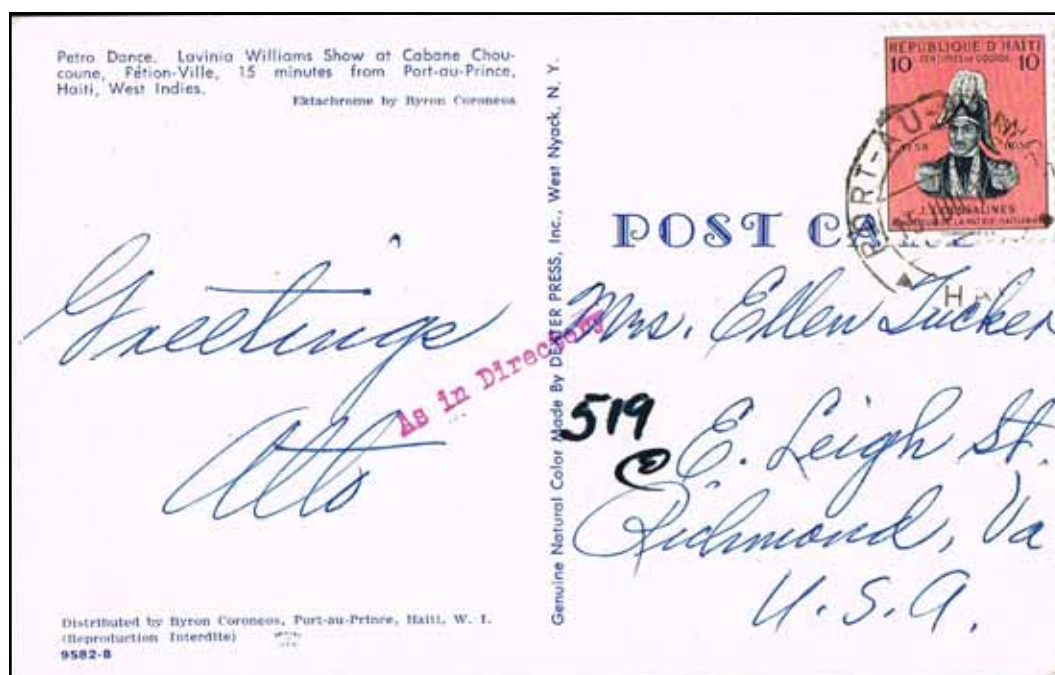 Petro Dance. Lavinia Williams Show at Cabane Chou-
coune, Pétion-Ville, 15 minutes from Port-au-Prince,
Haiti, West Indies.
Ektachrome by Byron Coroneos
Greetings
As in Directory
Distributed by Byron Coroneos, Port-au-Prince, Haiti, W. I.
(Reproduction Interdite)
9582-B
Genuine Natural Color Made By DEXTER PRESS, Inc., West Nyack, N. Y.
REPUBLIQUE D'HAITI
10 CENTIMES DE GOURDE 10
1758
J.J. DESSALINES
PORT-AU-
POST CA
Mrs. Ellen Tucker
519
E. Leigh St.
Richmond, Va
U.S.A.